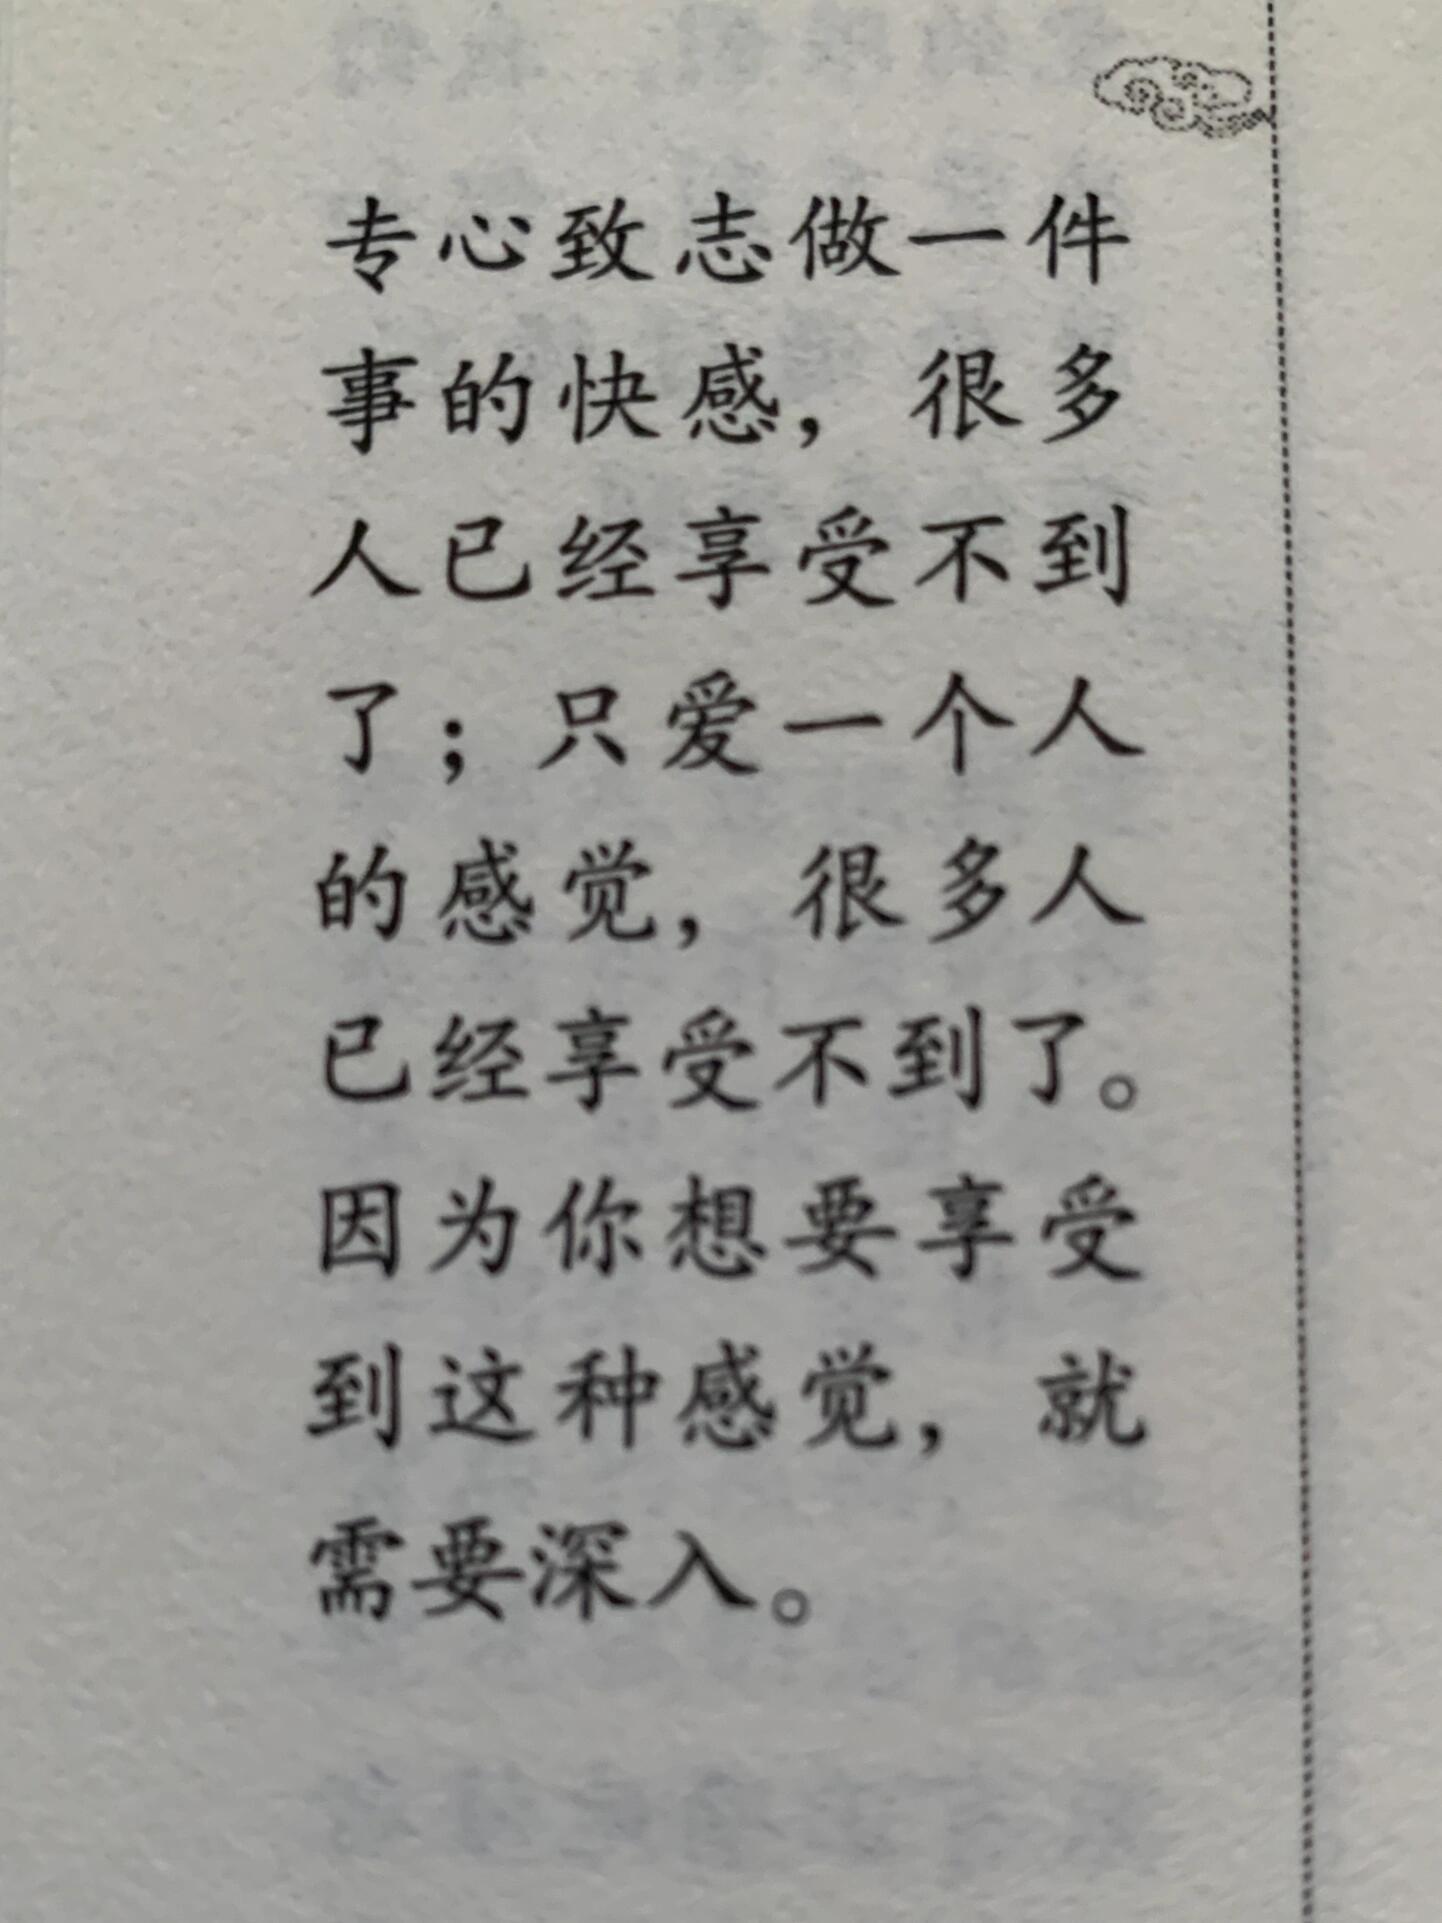 专心致志做一件
事的快感，很多
人已经享受不到
了；只爱一个人
的感觉，很多人
已经享受不到了。
因为你想要享受
到这种感觉，就
需要深入。